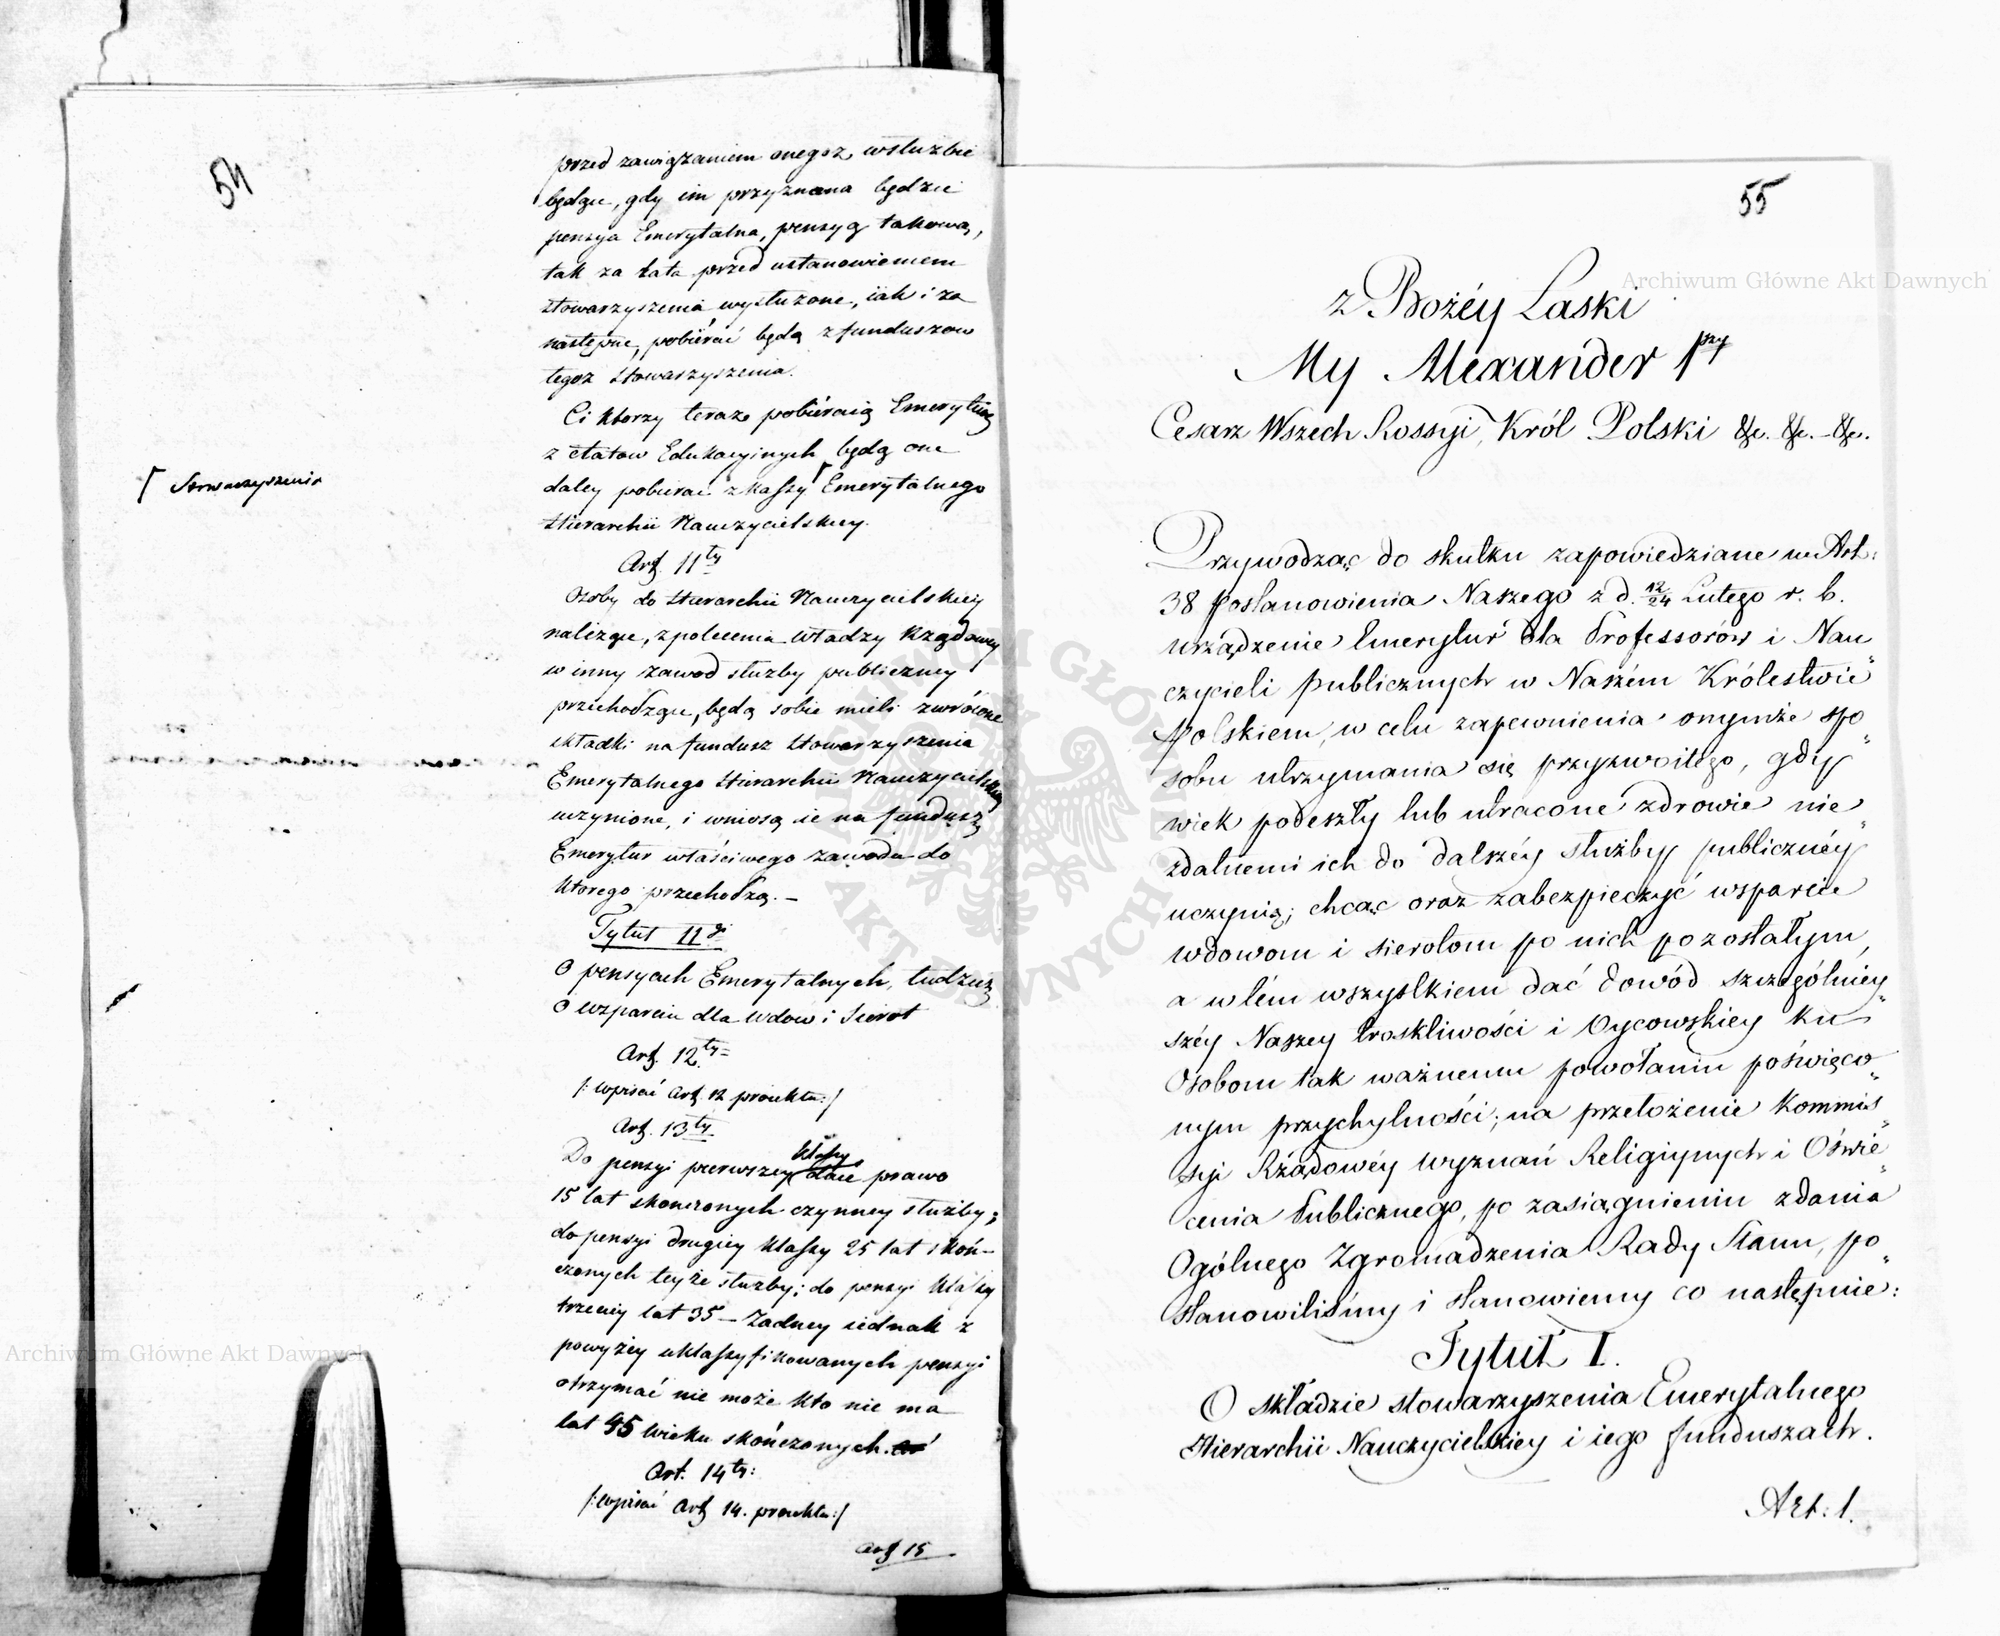 54
przed zawiązaniem onegoż, w służbie
będące, gdy im przyznana będzie
pensya Emerytalna, pensyą takową,
tak za lata przed ustanowieniem
stowarzyszenia wysłużone, iak i za
następne, pobiérać będą z funduszow
tegoż stowarzyszenia.
Ci ktorzy teraz pobiéraią Emeryturę
z etatow Edukacyinych będą one
daley pobierać z kassy ⌈ Emerytalnego
⌈ Stowarzyszenia
Hierarchii Nauczycielskiey.
Art. 11ty
Osoby do Hierarchii Nauczycielskiey
należące, z polecenia Władzy Rządowey
w inny zawod służby publiczney
przechodzące, będą sobie mieli zwrócone
składki na fundusz stowarzyszenia
Emerytalnego Hierarchii Nauczycielskiey
uczynione, i wniosą ie na fundusz
Emerytur właściwego zawodu do
ktorego przechodzą. –
Tytuł II gi
O pensyach Emerytalnych, tudzież
O wsparciu dla wdow i Sierot
Art. 12ty
/: wpisać Art. 12 proiektu :/
Art. 13ty
Do pensyi pierwszey klassy daie prawo
15 lat skonczonych czynney służby;
do pensyi drugiey klassy 25 lat skoń-
czonych teyże służby; do pensyi klassy
trzeciey lat 35 – Żadney iednak z
powyżey uklassyfikowanych pensyi
otrzymać nie może kto nie ma
lat 45 wieku skończonych.
Art. 14ty:
/: wpisać Art. 14. proiektu :/
Art 15
55
z Bożéy Łaski
My Alexander 1szy
Cesarz Wszech Rossyi, Król Polski &c. &c. &c.
Przywodząc do skutku zapowiedziane w Art:
38 Postanowienia Naszego z d. 12/24 Lutego r. b.
urządzenie Emerytur dla Professorów i Nau„
czycieli publicznych w Naszém Królestwie
Polskiem, w celu zapewnienia onymże spo„
sobu utrzymania się przyzwoitego, gdy
wiek podeszły lub utracone zdrowie nie„
zdatnemi ich do dalszéy służby publicznéy
uczynią; chcąc oraz zabezpieczyć wsparcie
wdowom i sierotom po nich pozostałym,
a w tém wszystkiem dać dowód szczególniey„
széy Naszey troskliwości i Oycowskiey ku
Osobom tak ważnemu powołaniu poświęco„
nym przychylności; na przełożenie Kommis„
syi Rządowéy Wyznań Religiynych i Oświe„
cenia Publicznego, po zasiągnieniu zdania
Ogólnego Zgromadzenia Rady Stanu, po„
stanowiliśmy i stanowiemy co następuie:
Tytuł I.
O składzie stowarzyszenia Emerytalnego
Hierarchii Nauczycielskiey i iego funduszach.
Art: 1.
Archiwum Główne Akt Dawnych
Archiwum Główne Akt Dawnych
ARCHIWUM GŁÓWNE AKT DAWNYCH